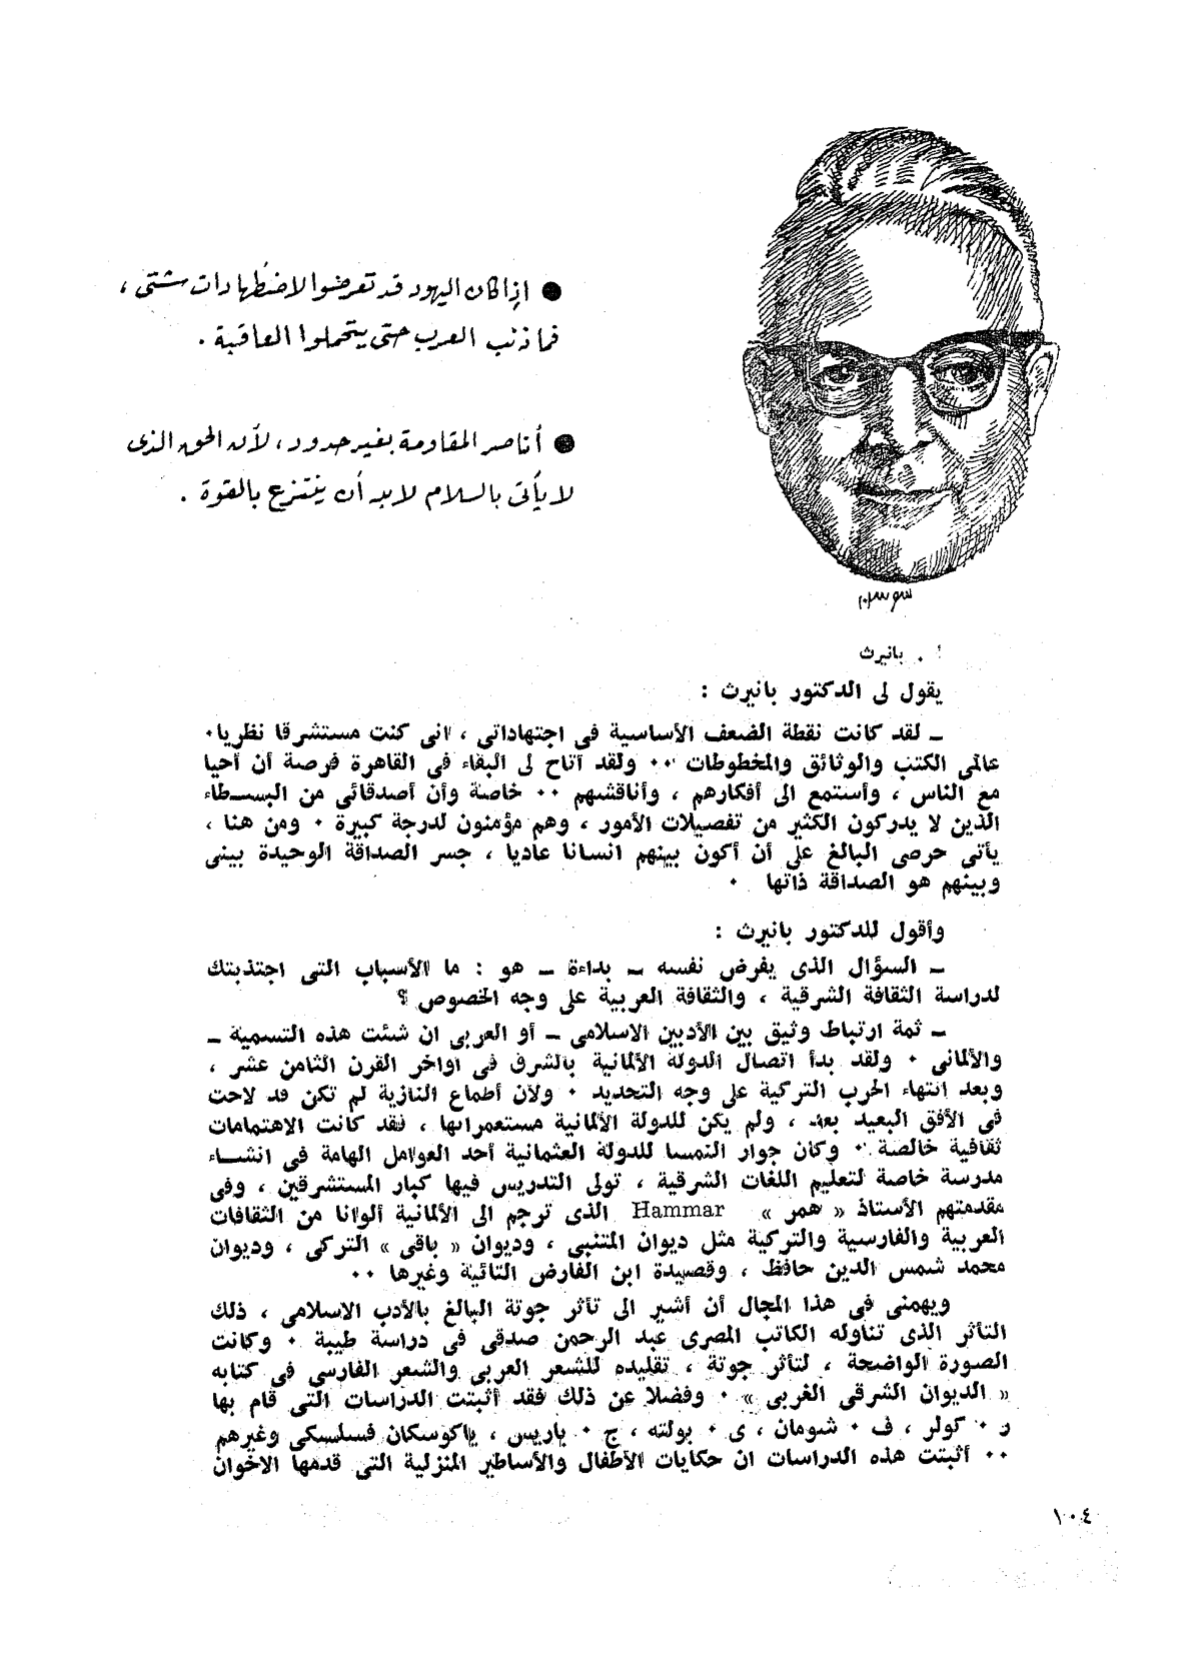 ● إذا كان اليهود قد تعرضوا لاضطهادات شتى ،
فما ذنب العرب حتى يتحملوا العاقبة .
● أناصر المقاومة بغير حدود ، لأن الحق الذى
لا يأتى بالسلام لابد أن ينتزع بالقوة .
سوسن
أ . بانيرث
يقول لى الدكتور بانيرث :
ــ لقد كانت نقطة الضعف الأساسية فى اجتهاداتى ، انى كنت مستشرقا نظريا٠
عالمى الكتب والوثائق والمخطوطات ٠٠ ولقد أتاح لى البقاء فى القاهرة فرصة أن أحيا
مع الناس ، وأستمع الى أفكارهم ، وأناقشهم ٠٠ خاصة وأن أصدقائى من البسطاء
الذين لا يدركون الكثير من تفصيلات الأمور ، وهم مؤمنون لدرجة كبيرة ٠ ومن هنا ،
يأتى حرصى البالغ على أن أكون بينهم انسانا عاديا ، جسر الصداقة الوحيدة بينى
وبينهم هو الصداقة ذاتها ٠
وأقول للدكتور بانيرث :
ــ السؤال الذى يفرض نفسه ــ بداءة ــ هو : ما الأسباب التى اجتذبتك
لدراسة الثقافة الشرقية ، والثقافة العربية على وجه الخصوص ؟
ــ ثمة ارتباط وثيق بين الأدبين الاسلامى ــ أو العربى ان شئت هذه التسمية ــ
والألمانى ٠ ولقد بدأ اتصال الدولة الألمانية بالشرق فى أواخر القرن الثامن عشر ،
وبعد انتهاء الحرب التركية على وجه التحديد ٠ ولأن أطماع النازية لم تكن قد لاحت
فى الأفق البعيد بعد ، ولم يكن للدولة الألمانية مستعمراتها ، فقد كانت الاهتمامات
ثقافية خالصة ٠٠ وكان جوار النمسا للدولة العثمانية أحد العوامل الهامة فى انشاء
مدرسة خاصة لتعليم اللغات الشرقية ، تولى التدريس فيها كبار المستشرقين ، وفى
مقدمتهم الأستاذ « همر » Hammar الذى ترجم الى الألمانية ألوانا من الثقافات
العربية والفارسية والتركية مثل ديوان المتنبى ، وديوان « باقى » التركى ، وديوان
محمد شمس الدين حافظ ، وقصيدة ابن الفارض التائية وغيرها ٠٠
ويهمنى فى هذا المجال أن أشير الى تأثر جوتة البالغ بالأدب الاسلامى ، ذلك
التأثر الذى تناوله الكاتب المصرى عبد الرحمن صدقى فى دراسة طيبة ٠ وكانت
الصورة الواضحة ، لتأثر جوتة ، تقليده للشعر العربى والشعر الفارسى فى كتابه
« الديوان الشرقى الغربى » ٠ وفضلا عن ذلك فقد أثبتت الدراسات التى قام بها
ر ٠ كولر ، ف ٠ شومان ، ى ٠ بولته ، ج ٠ باريس ، ياكوسكان فسلسكى وغيرهم
٠٠ أثبتت هذه الدراسات ان حكايات الأطفال والأساطير المنزلية التى قدمها الاخوان
١٠٤